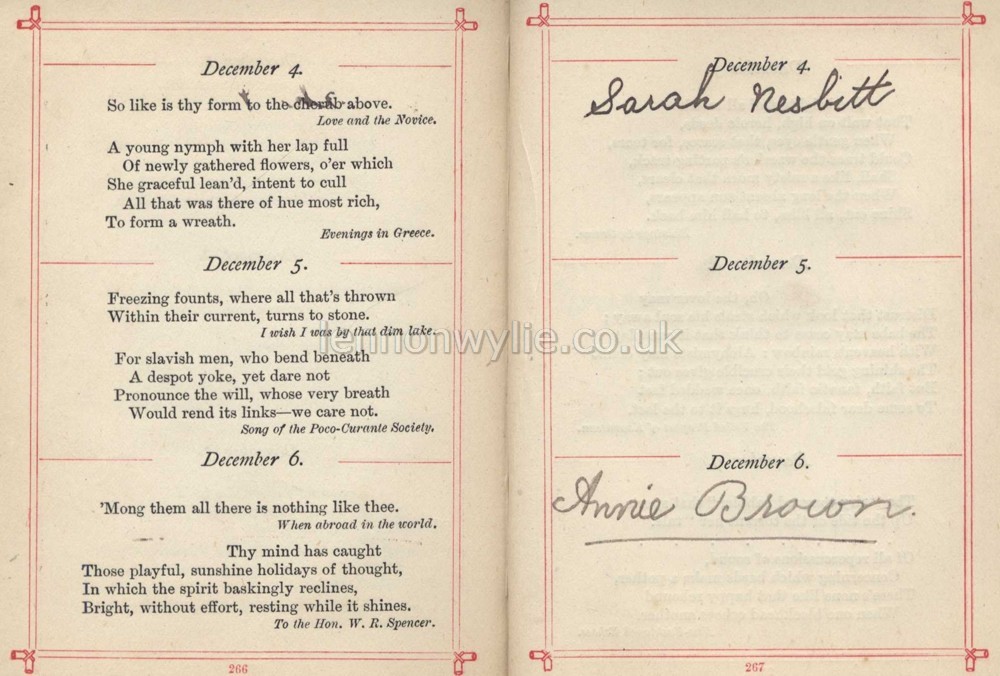 December 4.
So like is thy form to the cherub above.
Love and the Novice.
A young nymph with her lap full
Of newly gathered flowers, o'er which
She graceful lean'd, intent to cull
All that was there of hue most rich,
To form a wreath.
Evenings in Greece.
December 5.
Freezing founts, where all that's thrown
Within their current, turns to stone.
I wish I was by that dim lake.
For slavish men, who bend beneath
A despot yoke, yet dare not
Pronounce the will, whose very breath
Would rend its links—we care not.
Song of the Poco-Curante Society.
December 6.
'Mong them all there is nothing like thee.
When abroad in the world.
Thy mind has caught
Those playful, sunshine holidays of thought,
In which the spirit baskingly reclines,
Bright, without effort, resting while it shines.
To the Hon. W. R. Spencer.
266
December 4.
Sarah Nesbitt
December 5.
December 6.
Annie Brown.
267
lennonwylie.co.uk